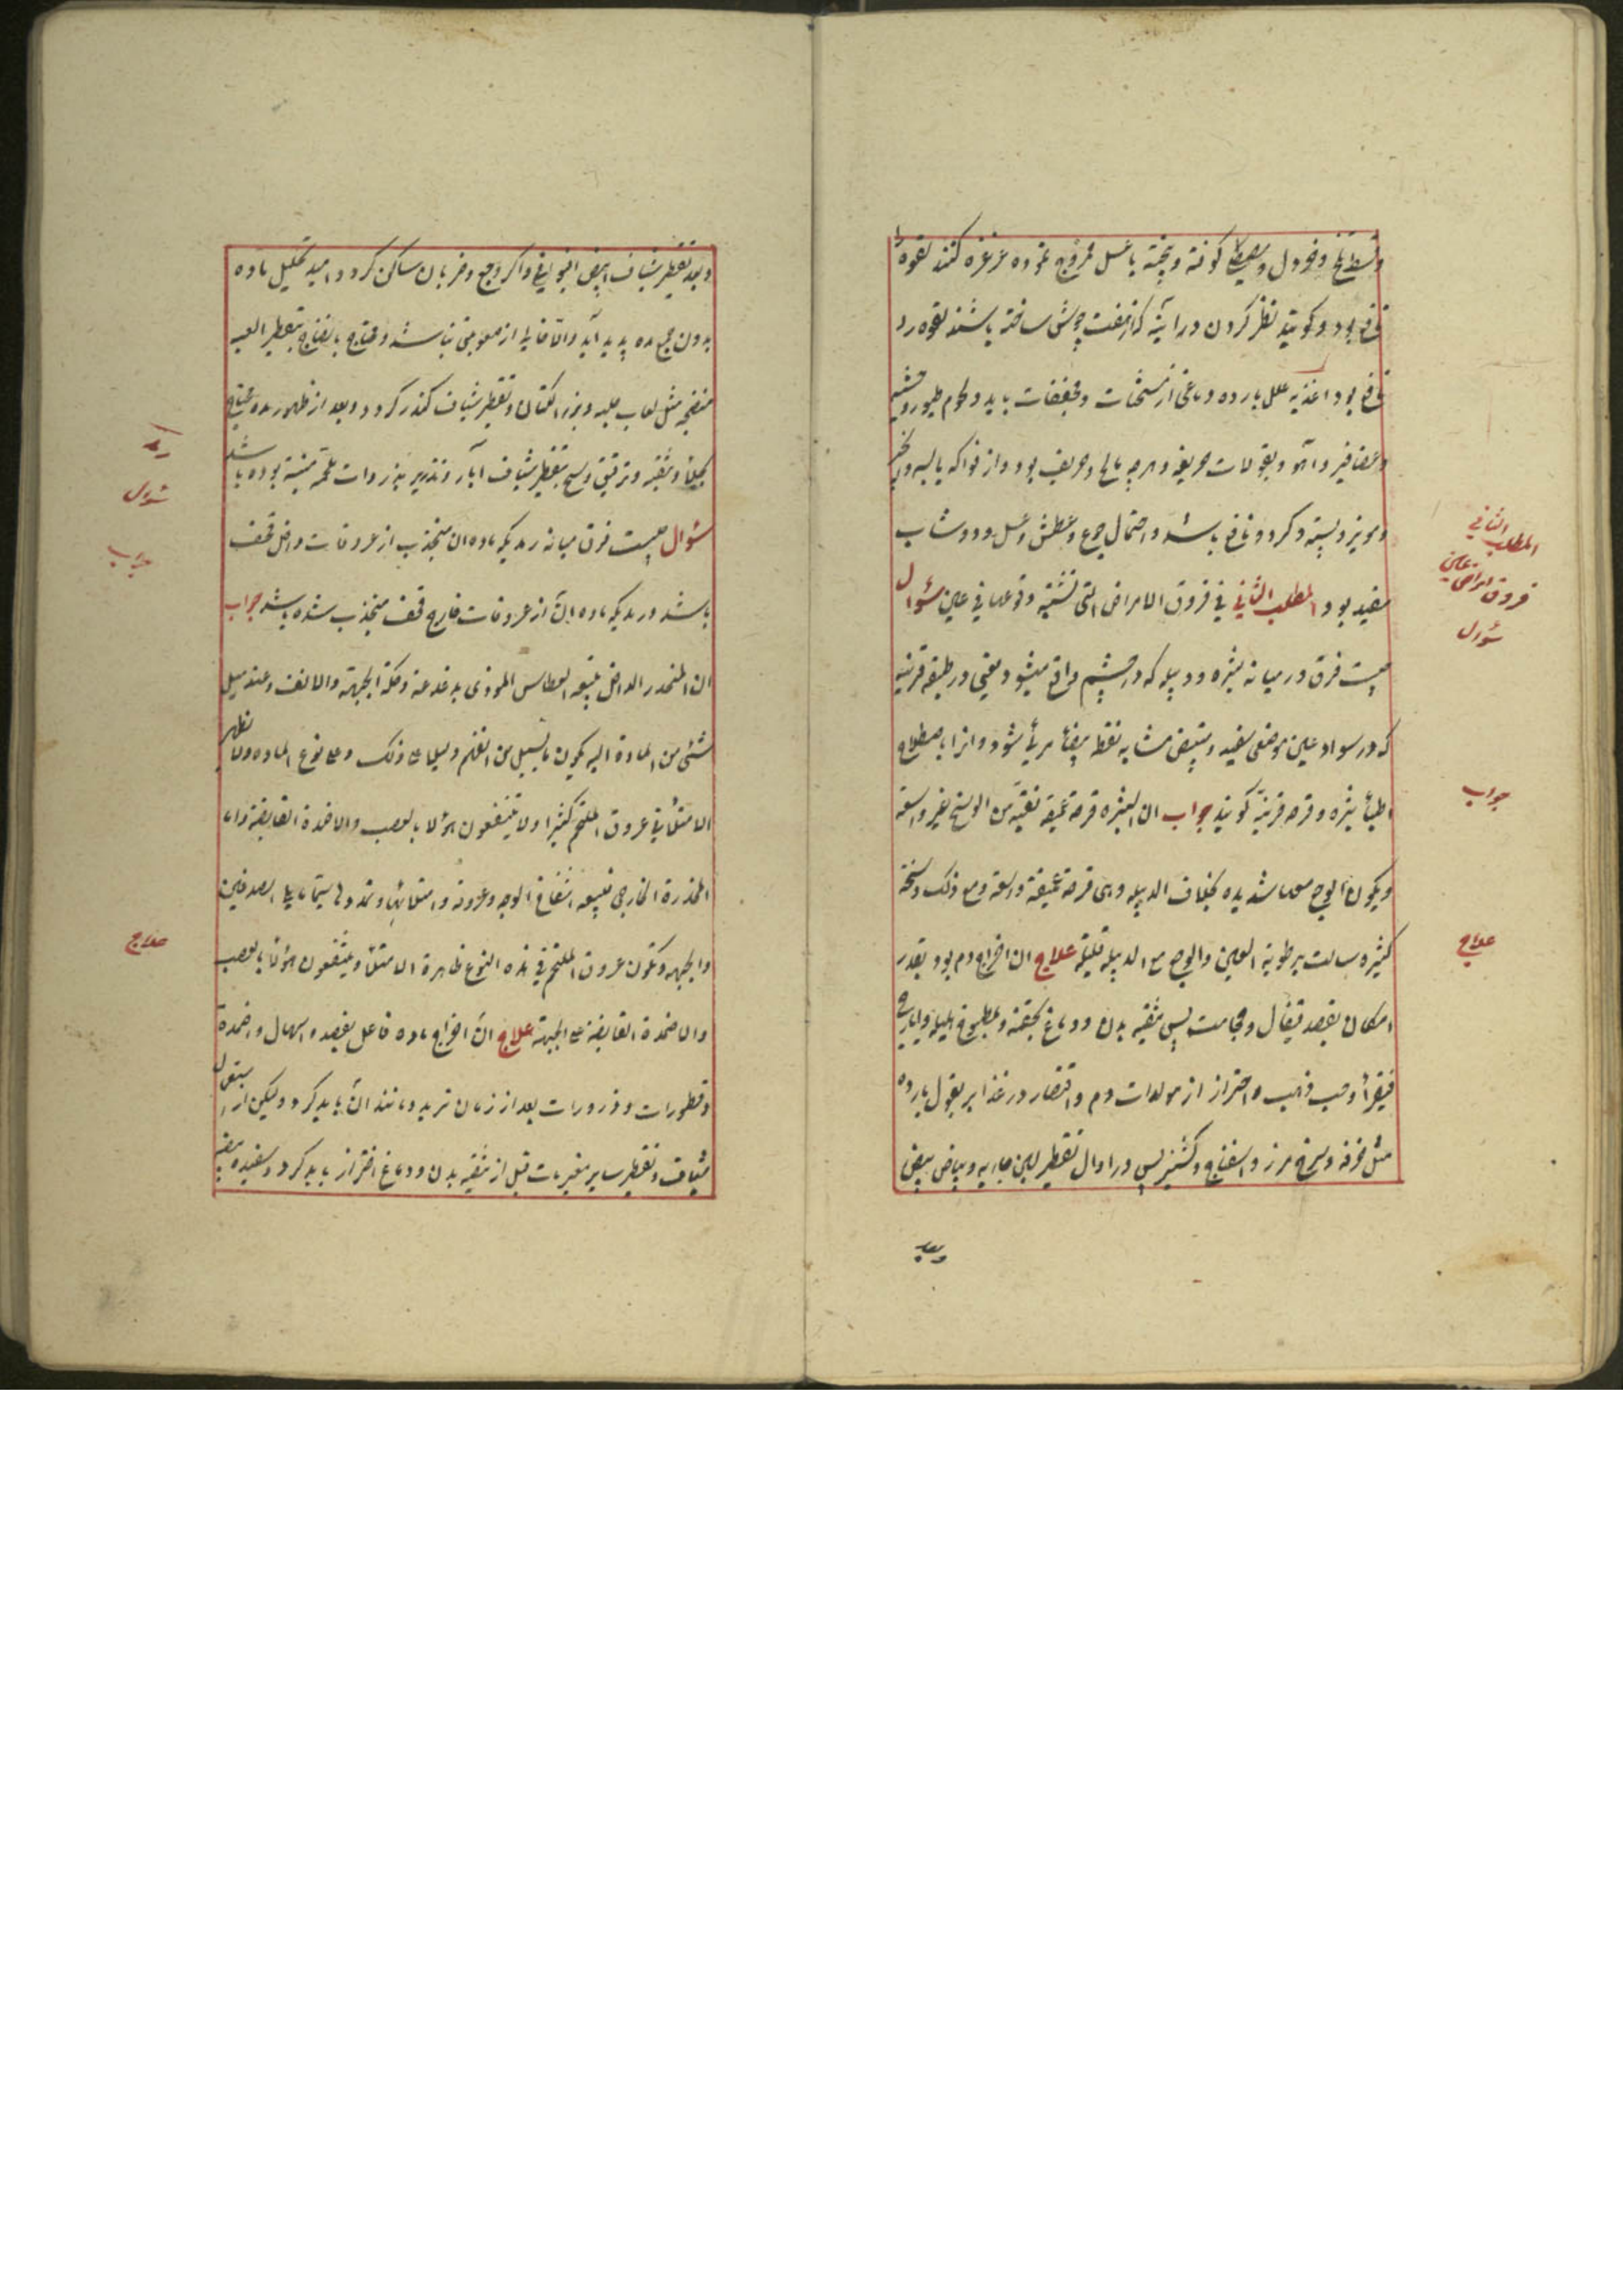 و شیطرج و خردل و مصطکی کوفته و پخته با عسل ممزوج نموده غرغره کنند لقوه را
نافع بود و کویند نظر کردن در آینه که از هفت جوش ساخته باشند لقوه را
نافع بود اغذیه علل بارده دماغی از مسخنات و مجففات باید و لحوم طیور وحشیه
و عصافیر و آهو و بقولات حریفه و هرچه مالح و حریف بود و از فواکه یابسه و انجیر
و مویز و پسته و کردو نافع باشد و احتمال جوع و عطش و عسل و دوشاب
مفید بود المطلب الثانی فی فروق الامراض التی تشتبه وقوعها فی عین سؤال
چیست فرق در میانه بثره و دبیله که در چشم واقع میشود یعنی در طبقه قرنیه
که در سواد عین موضعی سفید و مبیض مشابه نقطه بیضا مرئی شود و انرا باصطلاح
اطبا بثره و قرحه قرنیه کویند جواب ان البثره قرحة عمیقة نقیة من الوسخ غیر واسعة
ویکون الوجع معها شدیده بخلاف الدبیله وهی قرحة عمیقة واسعة ومع ذلک وسخة
کثیره سالت برطوبة العین والوجع مع الدبیلة قلیلة علاج ان اخراج دم بود بقدر
امکان بفصد قیفال و حجامت پس تنقیه بدن و دماغ بحقنه و مطبوخ هلیله و ایارج
فیقرا و حب ذهب و احتراز از مولدات دم و اقتصار در غذا بر بقول بارده
مثل خرفه و سرخ مرز و اسفناج و کشنیز پس در اوایل تقطیر لبن جاریه و بیاض بیض
وبعد
المطلب الثانی
فروق امراض عین
سؤال
جواب
علاج
و بعد تقطیر شیاف ابیض افیونی و اکر وجع و ضربان ساکن کردد امید تحلیل ماده
بدون مده پدید آید والا خالی از صعوبتی نباشد و محتاج بانضاج بتقطیر العبه
منضجه مثل لعاب حلبه و بزر الکتان و تقطیر شیاف کندر کردد و بعد از ظهور مده محتاج
بجلا و تنقیه و ترقیق وسخ بتقطیر شیاف آبار و تذریر بذرورات ملحمه منبته بوده باشد
سؤال چیست فرق میانه رمدیکه ماده ان منجذب از عروقات داخل قحف
باشد و رمدیکه ماده ان از عروقات خارج قحف منجذب شده باشد جواب
ان المنحدر الداخل یتبعه العطاس الموذی بدغدغة وحکة الجبهة والانف وعند میل
شئی من المادة الیه یکون ما یسیل من الفم دلیلا علی ذلک وعلی نوع الماده ولا تظهر
الامتلا فی عروق الملتحم کثیرا ولا ینتفعون هؤلا بالعصب والاضمدة القابضة واما
المنحدرة الخارجی فیتبعه انتفاخ الوجه وعروقه وامتلائها وتمددها سیما ما یلی الصدغین
والجبهه وتکون عروق الملتحم فی هذه النوع ظاهرة الامتلا وینتفعون هؤلا بالعصب
والاضمدة القابضة علی الجبهة علاج ان اخراج ماده فاعل بفصد و اسهال و اضمدة
و قطورات و ذرورات بعد از زمان تزید و مانند آن باید کرد ولیکن از استعمال
شیاف و تقطیر سایر مغریات قبل از تنقیه بدن و دماغ احتراز باید کرد و سفیده بیضه
سؤال
جواب
علاج